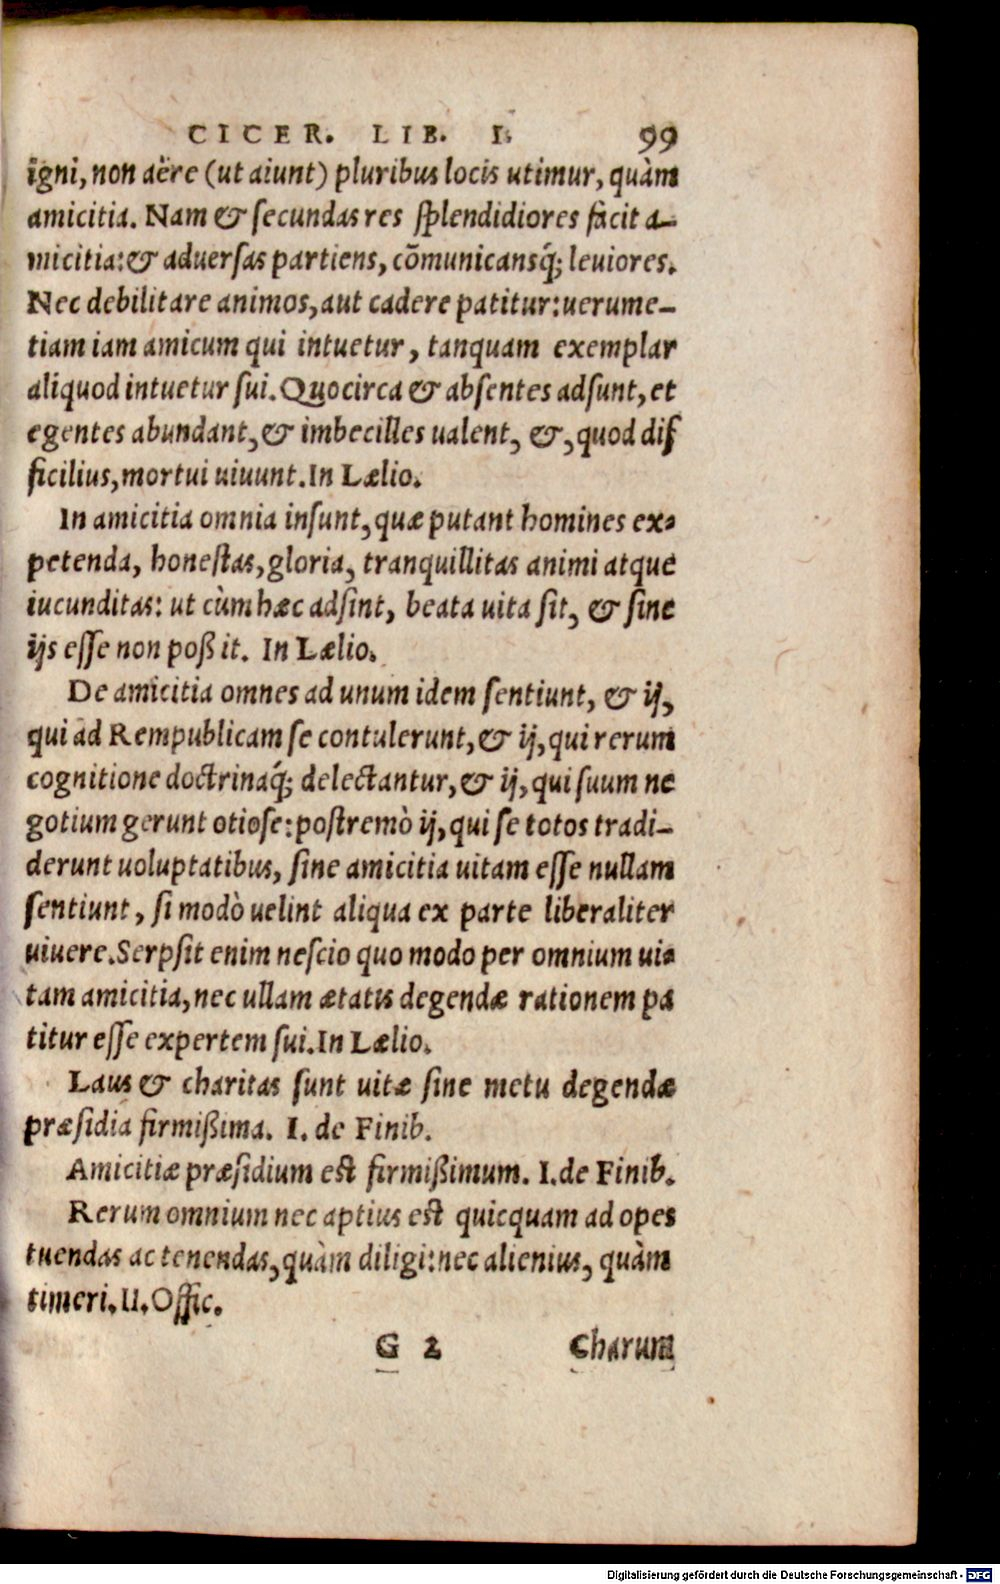 CICER. LIB. I. 99
igni, non aëre (ut aiunt) pluribus locis utimur, quàm
amicitia. Nam & secundas res splendidiores facit a-
micitia: & aduersas partiens, cōmunicansq́; leuiores.
Nec debilitare animos, aut cadere patitur: uerume-
tiam iam amicum qui intuetur, tanquam exemplar
aliquod intuetur sui. Quocirca & absentes adsunt, et
egentes abundant, & imbecilles ualent, &, quod dif
ficilius, mortui uiuunt. In Lælio.
In amicitia omnia insunt, quæ putant homines ex-
petenda, honestas, gloria, tranquillitas animi atque
iucunditas: ut cùm hæc adsint, beata uita sit, & sine
ijs esse non poßit. In Lælio.
De amicitia omnes ad unum idem sentiunt, & ij,
qui ad Rempublicam se contulerunt, & ij, qui rerum
cognitione doctrinaq́; delectantur, & ij, qui suum ne
gotium gerunt otiose: postremò ij, qui se totos tradi-
derunt uoluptatibus, sine amicitia uitam esse nullam
sentiunt, si modò uelint aliqua ex parte liberaliter
uiuere. Serpsit enim nescio quo modo per omnium ui-
tam amicitia, nec ullam ætatis degendæ rationem pa
titur esse expertem sui. In Lælio.
Laus & charitas sunt uitæ sine metu degendæ
præsidia firmißima. I. de Finib.
Amicitiæ præsidium est firmißimum. I. de Finib.
Rerum omnium nec aptius est quicquam ad opes
tuendas ac tenendas, quàm diligi: nec alienius, quàm
timeri. II. Offic.
G 2 Charum
Digitalisierung gefördert durch die Deutsche Forschungsgemeinschaft - DFG